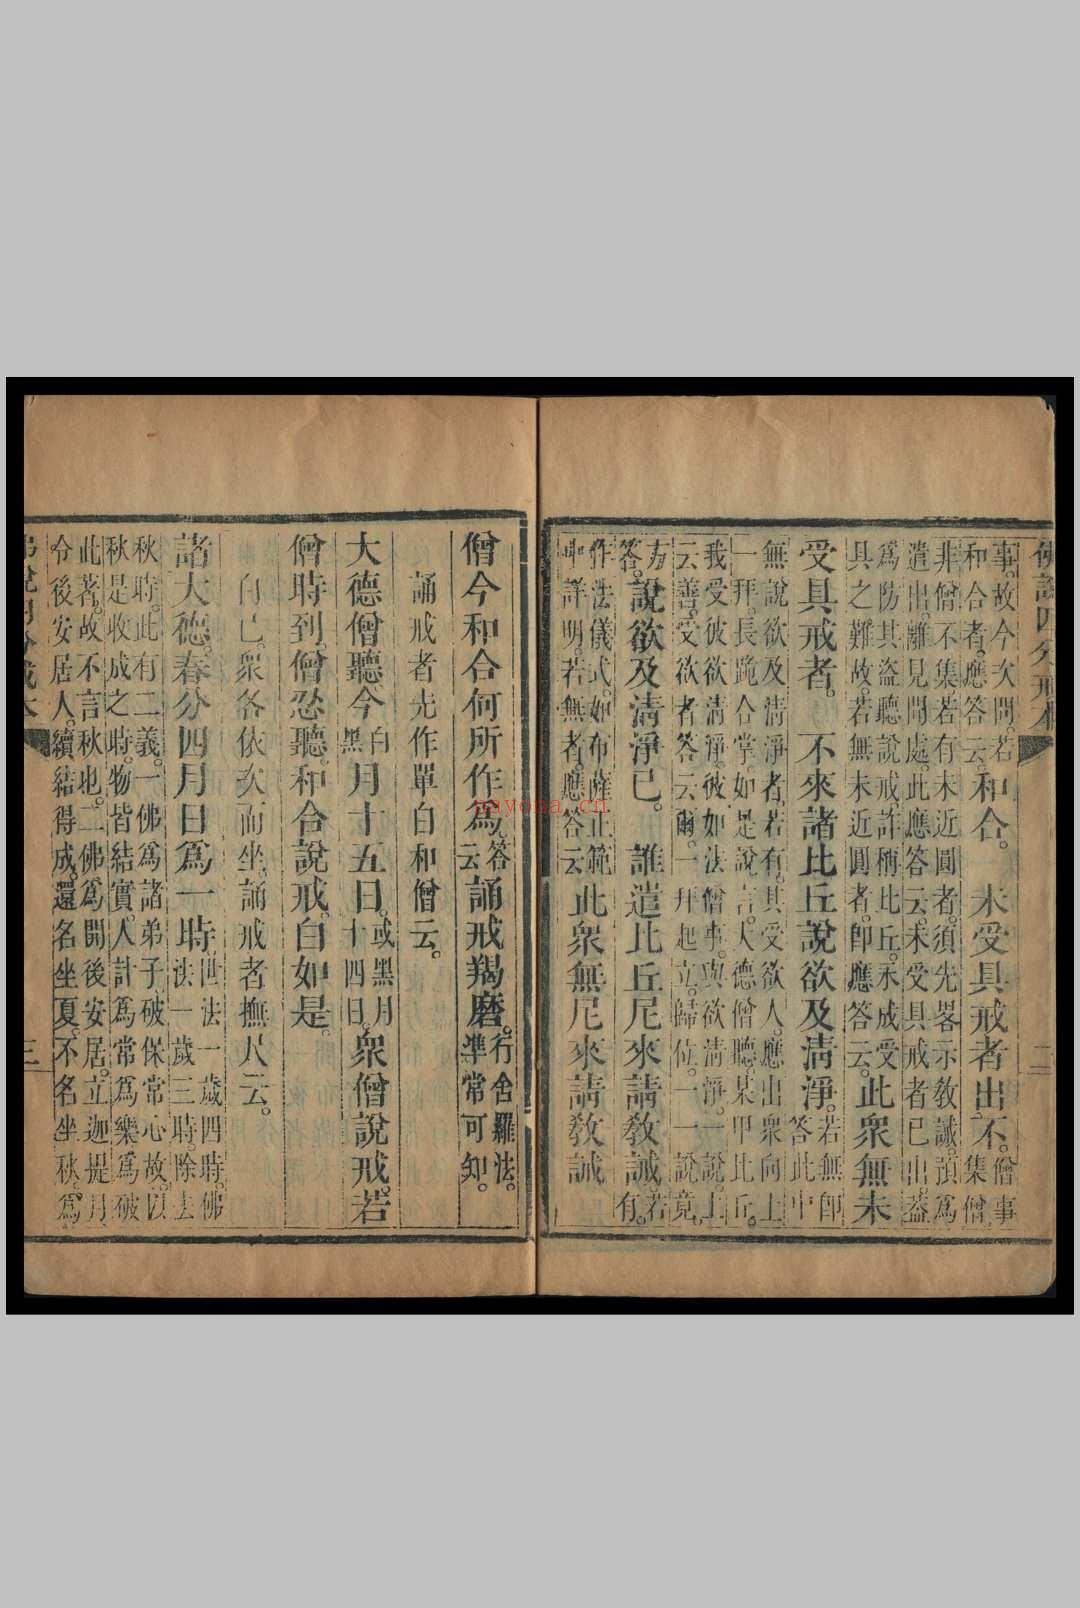 佛說四分戒本
二
事。故今次問。若
和合者。應答云。和合。 未受具戒者出不。僧事
非僧不集。若有未近圓者。須先畧示教誡。預為集僧
遣出離見聞處。此應答云。未受具戒者已出。蓋
為防其盜聽說戒。詐稱比丘。永成受
具之難故。若無未近圓者。卽應答云。此衆無未
受具戒者。 不來諸比丘說欲及清淨。若無卽答此中
無說欲及清淨者。若有。其受欲人。應出衆向上
一拜。長跪合掌。如是說言。大德僧聽。某甲比丘。
我受彼欲清淨。彼如法僧事。與欲清淨。一說。上
云善。受欲者答云爾。一拜起立。歸位。一一說竟。
方答。說欲及清淨已。 誰遣比丘尼來請教誡。若有。
作法儀式。如布薩正範
中詳明。若無者。應答云此衆無尼來請教誡
僧今和合何所作為。答云誦戒羯磨。行舍羅法。準常可知。
誦戒者先作單白和僧云。
大德僧聽。今白黑月十五日。或黑月十四日。衆僧說戒。若
僧時到。僧忍聽。和合說戒。白如是。
白已。衆各依次而坐。誦戒者撫尺云。
諸大德。春分四月日為一時世法一歲四時。佛法一歲三時。除去
秋時。此有二義。一佛為諸弟子破保常心故。以
秋是收成之時。物皆結實。人計為常為樂。為破
此著。故不言秋也。二佛為開後安居。立迦提月。
令後安居人。續結得成。還名坐夏。不名坐秋。為
三